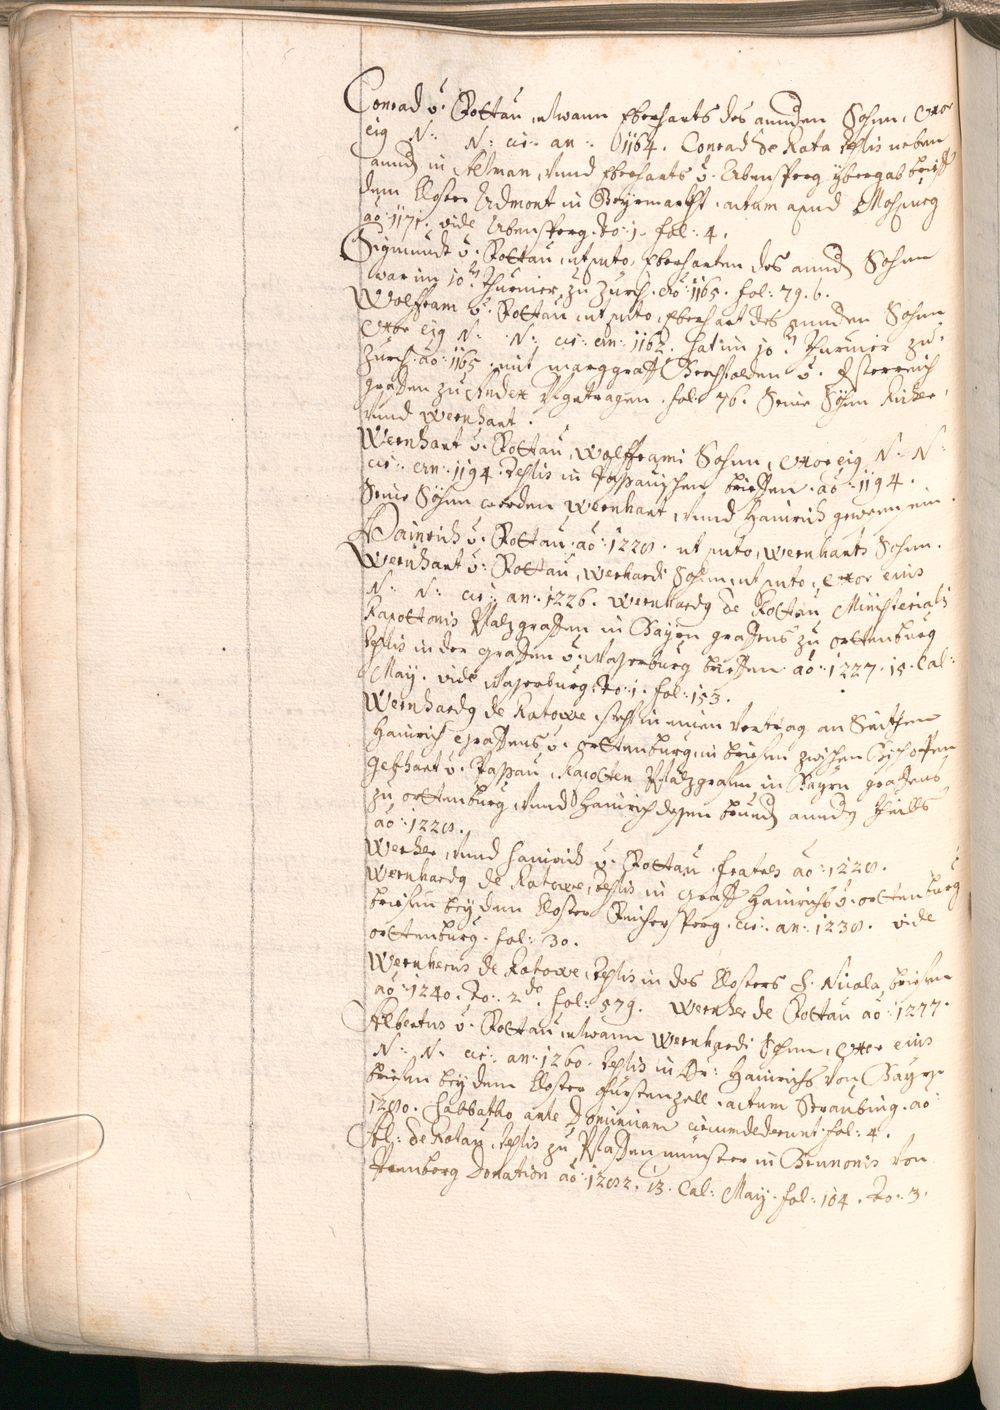 Conrad v. Rottau, etwann Eberharts des anndern Sohnn, Vxor
eig N: N: cir: an: 1164. Conrad de Rata testis neben
annd in Altman, vnnd Eberharts v. Abensperg ybergab brieff
dem Closter Admont in Steyrmarckht. actum apud Mospurg
ao: 1171. vide Abensperg. to: 1. fol: 4.
Sigmundt v. Rottau, ut puto, Eberharten des annd Sohnn
war im 10. thurnier zu Zürch. ao: 1165. fol: 79. b.
Wolffram v. Rottau, ut puto, Eberhart des annden Sohnn
Vxor eig N: N: cir: an: 1162. hat im 10. thurnier zu
Zürch. ao: 1165. mit marggraff Berchtolden v. Österreich
graffen zu Andex tgetragen. fol: 76. Seine Söhn Richer,
vnnd Wernhart.
Wernhart v. Rottau, Wolfframi Sohnn, Vxor eig N: N:
cir: an: 1194. testis in Passauischen brieffen. ao: 1194.
Seine Söhnn werden Wernhart, vnnd Hainrich gewesen sein.
Hainrich v. Rottau. ao: 1220. ut puto, Wernharts Sohnn.
Wernhart v: Rottau, Werhardi Sohnn, ut puto, Vxor eius
N: N: cir: an: 1226. Wernhardg de Rottau Ministerialis
Rapottonis Pfalzgraffen in Bayrn graffens zu ortenburg
testis in der graffen v. Waserburg brieffen ao: 1227. 15. Cal:
May. vide waserburg. to: 1. fol: 153.
Wernhardg de Ratowe, steht in einen Vertrag an Seithen
Hainrich Graffens v. ortenburg, in brieffen zwischen Bischoffen
Gebhart v. Passau, Rapoten Pfalzgraffen in Bayrn graffens
zu ortenburg, vnnd Hainrich dessen brueder annders theills
ao: 1220.
Wernher, vnnd Hainrich v. Rottau, fratres ao: 1220.
Wernhardg de Ratowe, testis in Graff Hainrichs v. ortenburg
brieffen bey dem Closter Reichersperg. cir: an: 1230. vide
ortenburg. fol: 30.
Wernherus de Ratowe, testis in des Closters S. Nicola brieffen
ao: 1240. to: 2.do fol: 579. Wernher de Rottau ao: 1277.
Albertus v. Rottau, etwann Wernhardi Sohnn, Vxor eius
N: N: cir: an: 1260. testis in Hr: Hainrichs von Bayrn
brieffen bey dem Closter Fürstenzell. actum Straubing. ao:
1280. Sabbatho ante Dominicam circumdederunt. fol: 4.
Al: de Rotau, testis zu Pfaffenmünster in Brunonis von
Prennberg Donation ao: 1282. 13. Cal: May. fol: 104. to: 3.